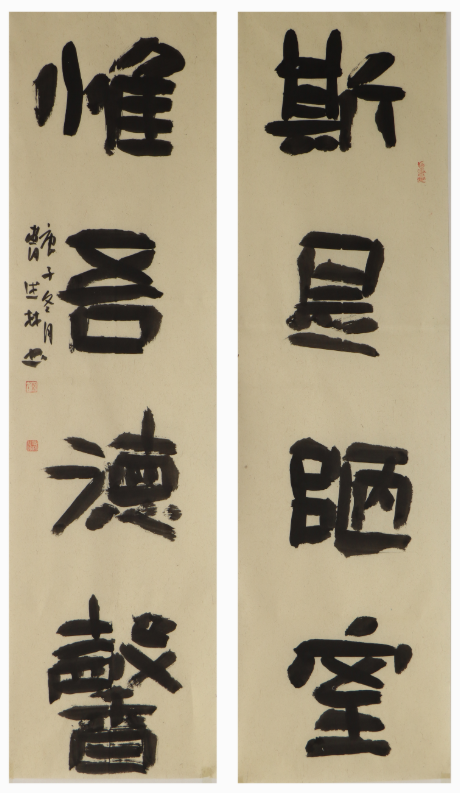 斯是陋室
惟吾德馨
庚子冬月